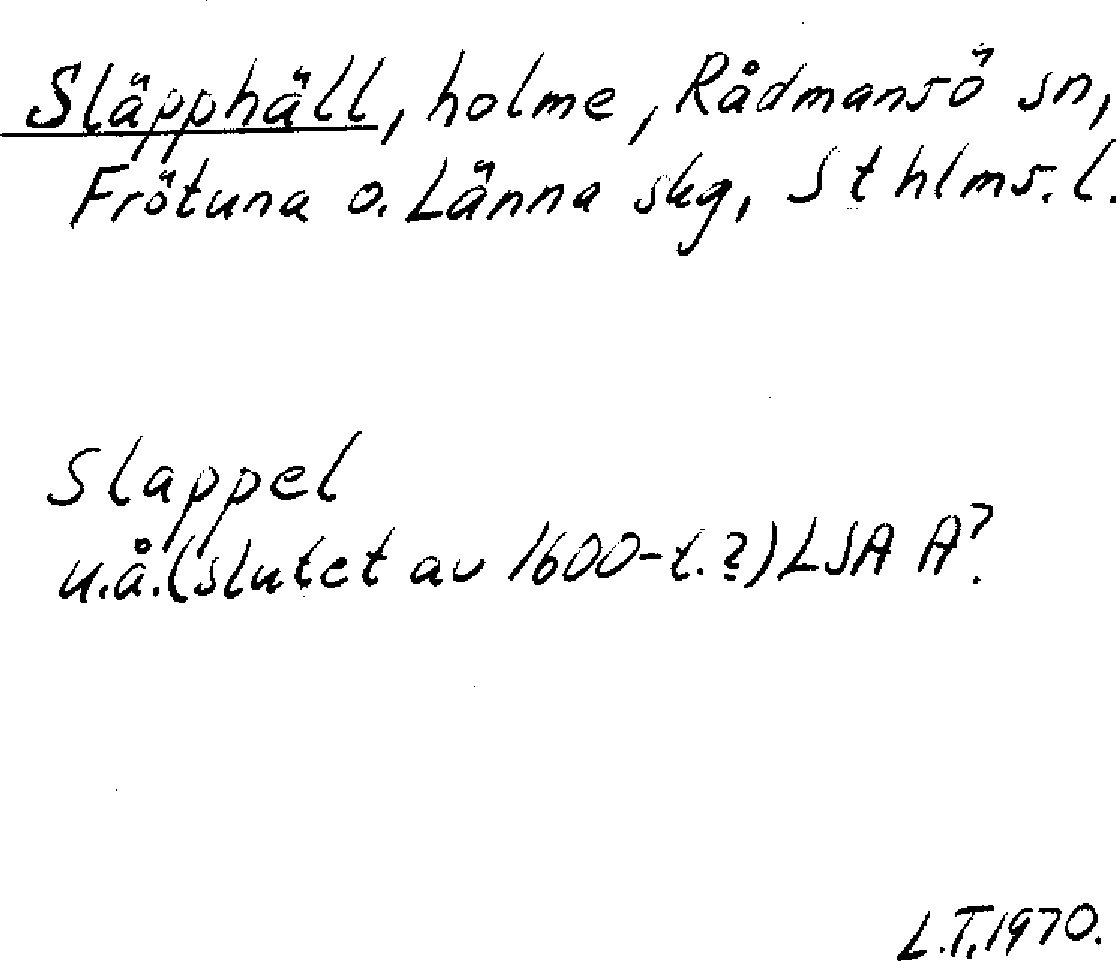 Släpphäll, holme, Rådmansö sn,
Frötuna o. Länna skg, Sthlms. l.
Slappel
u.å. (slutet av 1600-t. ?) LSA A7.
L.T. 1970.